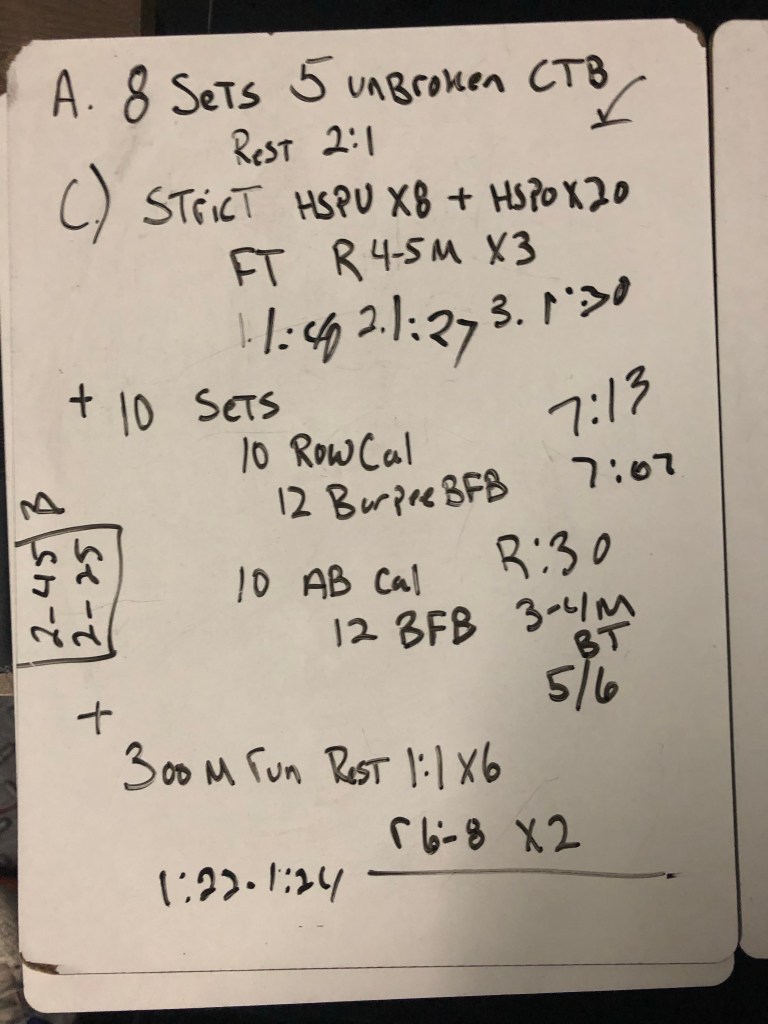 A. 8 SETS 5 UNBROKEN CTB
REST 2:1
C.) STRICT HSPU X8 + HSPU X20
FT R 4-5 M X3
1. 2. 1:27 3. 1:30
+ 10 SETS
7:13
10 Row Cal
7:07
12 Burpee BFB
B
2-45
2-25
10 AB Cal
R:30
12 BFB
3-4M
BT
5/6
+
300 M run REST 1:1 X6
r 6-8 X2
1:22. 1:24